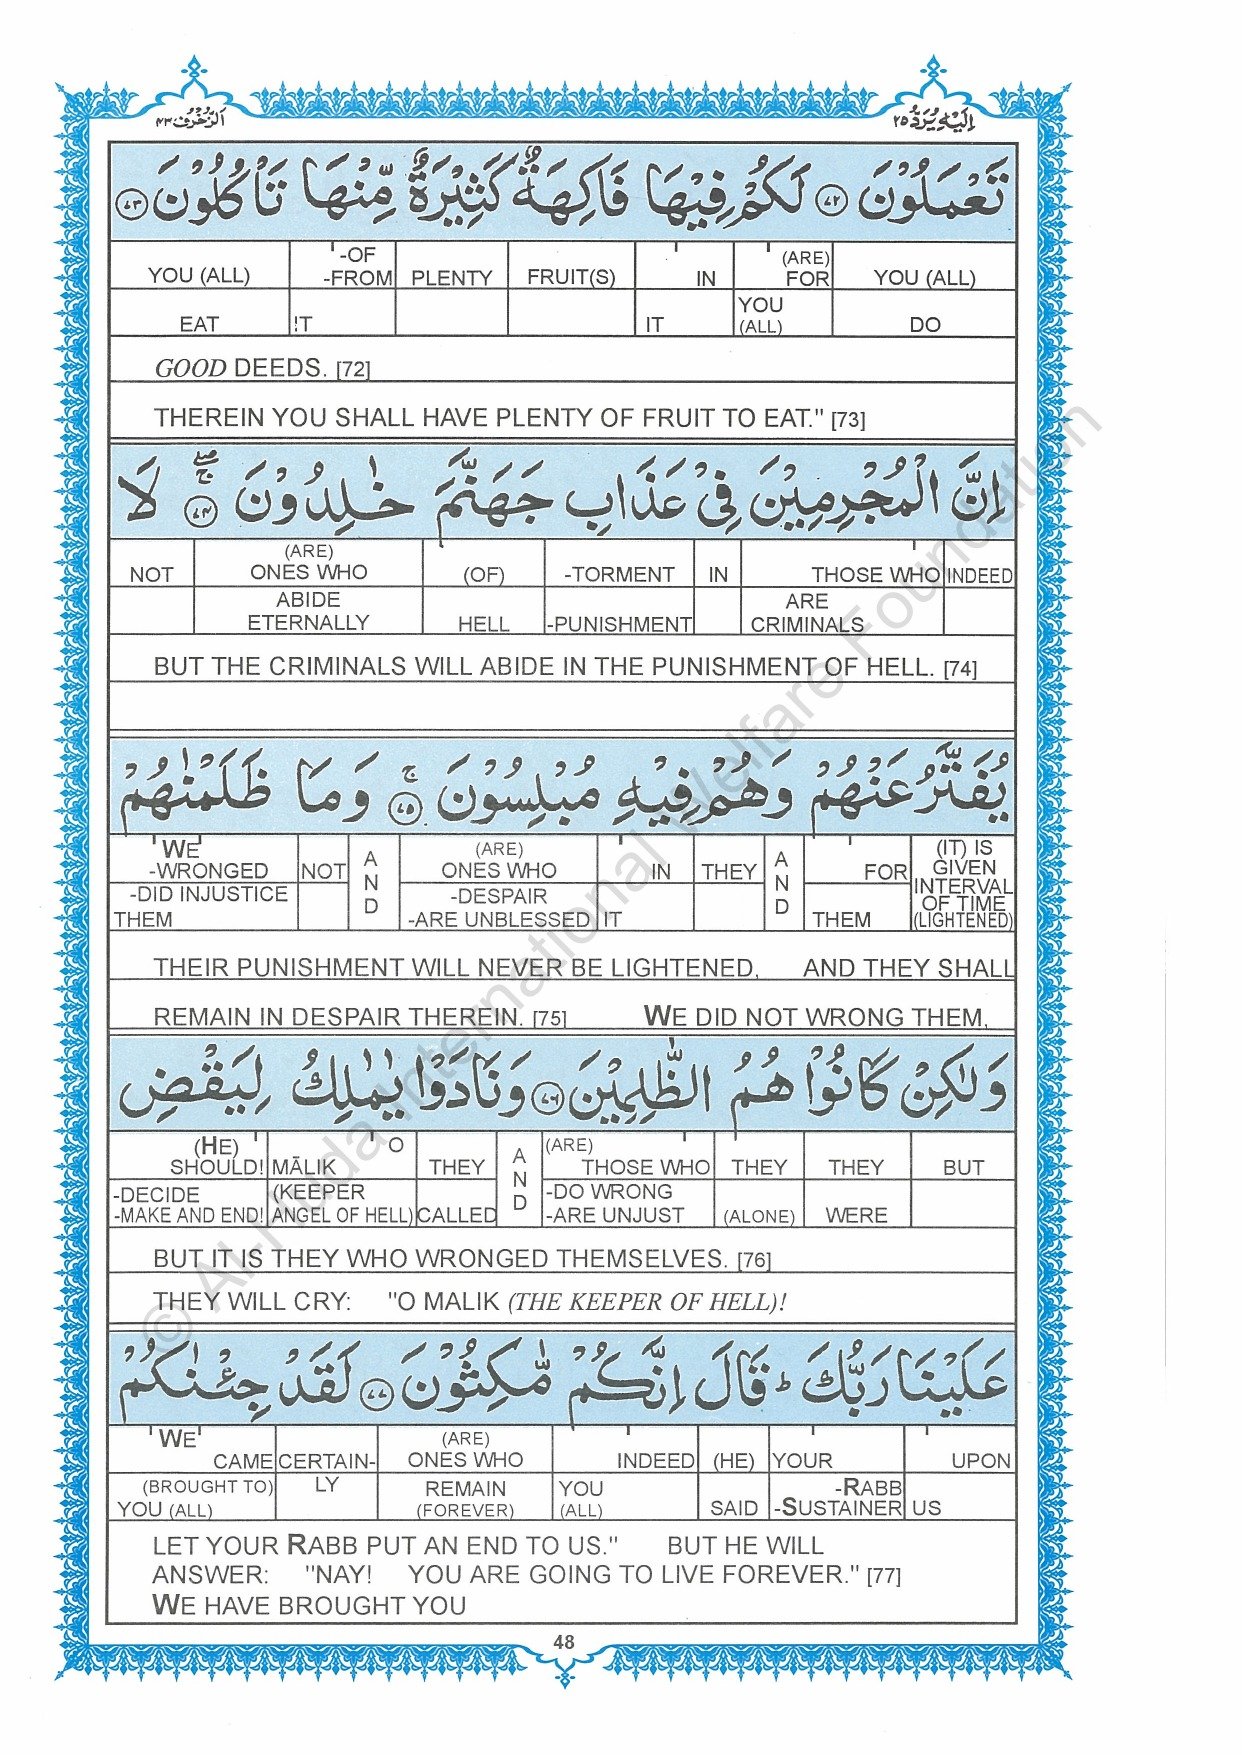 اَلزُّخْرُف ٤٣
اِلَيْهِ يُرَدُّ ٢٥
تَعْمَلُوْنَ ﴿٧٢﴾ لَكُمْ فِيْهَا فَاكِهَةٌ كَثِيْرَةٌ مِّنْهَا تَاْكُلُوْنَ ﴿٧٣﴾
YOU (ALL) -OF -FROM PLENTY FRUIT(S) IN (ARE) FOR YOU (ALL)
EAT !T IT YOU (ALL) DO
GOOD DEEDS. [72]
THEREIN YOU SHALL HAVE PLENTY OF FRUIT TO EAT." [73]
اِنَّ الْمُجْرِمِيْنَ فِيْ عَذَابِ جَهَنَّمَ خٰلِدُوْنَ ﴿٧٤﴾ لَا
NOT (ARE) ONES WHO (OF) -TORMENT IN THOSE WHO INDEED
ABIDE ETERNALLY HELL -PUNISHMENT ARE CRIMINALS
BUT THE CRIMINALS WILL ABIDE IN THE PUNISHMENT OF HELL. [74]
يُفَتَّرُ عَنْهُمْ وَهُمْ فِيْهِ مُبْلِسُوْنَ ﴿٧٥﴾ وَمَا ظَلَمْنٰهُمْ
WE -WRONGED NOT AND (ARE) ONES WHO IN THEY AND FOR (IT) IS GIVEN INTERVAL OF TIME (LIGHTENED)
-DID INJUSTICE THEM -DESPAIR -ARE UNBLESSED IT THEM
THEIR PUNISHMENT WILL NEVER BE LIGHTENED, AND THEY SHALL
REMAIN IN DESPAIR THEREIN. [75] WE DID NOT WRONG THEM,
وَلٰكِنْ كَانُوْا هُمُ الظّٰلِمِيْنَ ﴿٧٦﴾ وَنَادَوْا يٰمٰلِكُ لِيَقْضِ
(HE) SHOULD! MĀLIK O THEY AND (ARE) THOSE WHO THEY THEY BUT
-DECIDE -MAKE AND END! (KEEPER ANGEL OF HELL) CALLED -DO WRONG -ARE UNJUST (ALONE) WERE
BUT IT IS THEY WHO WRONGED THEMSELVES. [76]
THEY WILL CRY: "O MALIK (THE KEEPER OF HELL)!
عَلَيْنَا رَبُّكَ ؕ قَالَ اِنَّكُمْ مّٰكِثُوْنَ ﴿٧٧﴾ لَقَدْ جِئْنٰكُمْ
WE CAME CERTAIN- (ARE) ONES WHO INDEED (HE) YOUR UPON
(BROUGHT TO) YOU (ALL) LY REMAIN (FOREVER) YOU (ALL) SAID -RABB -SUSTAINER US
LET YOUR RABB PUT AN END TO US." BUT HE WILL
ANSWER: "NAY! YOU ARE GOING TO LIVE FOREVER." [77]
WE HAVE BROUGHT YOU
48
© Al-Huda International Welfare Foundation